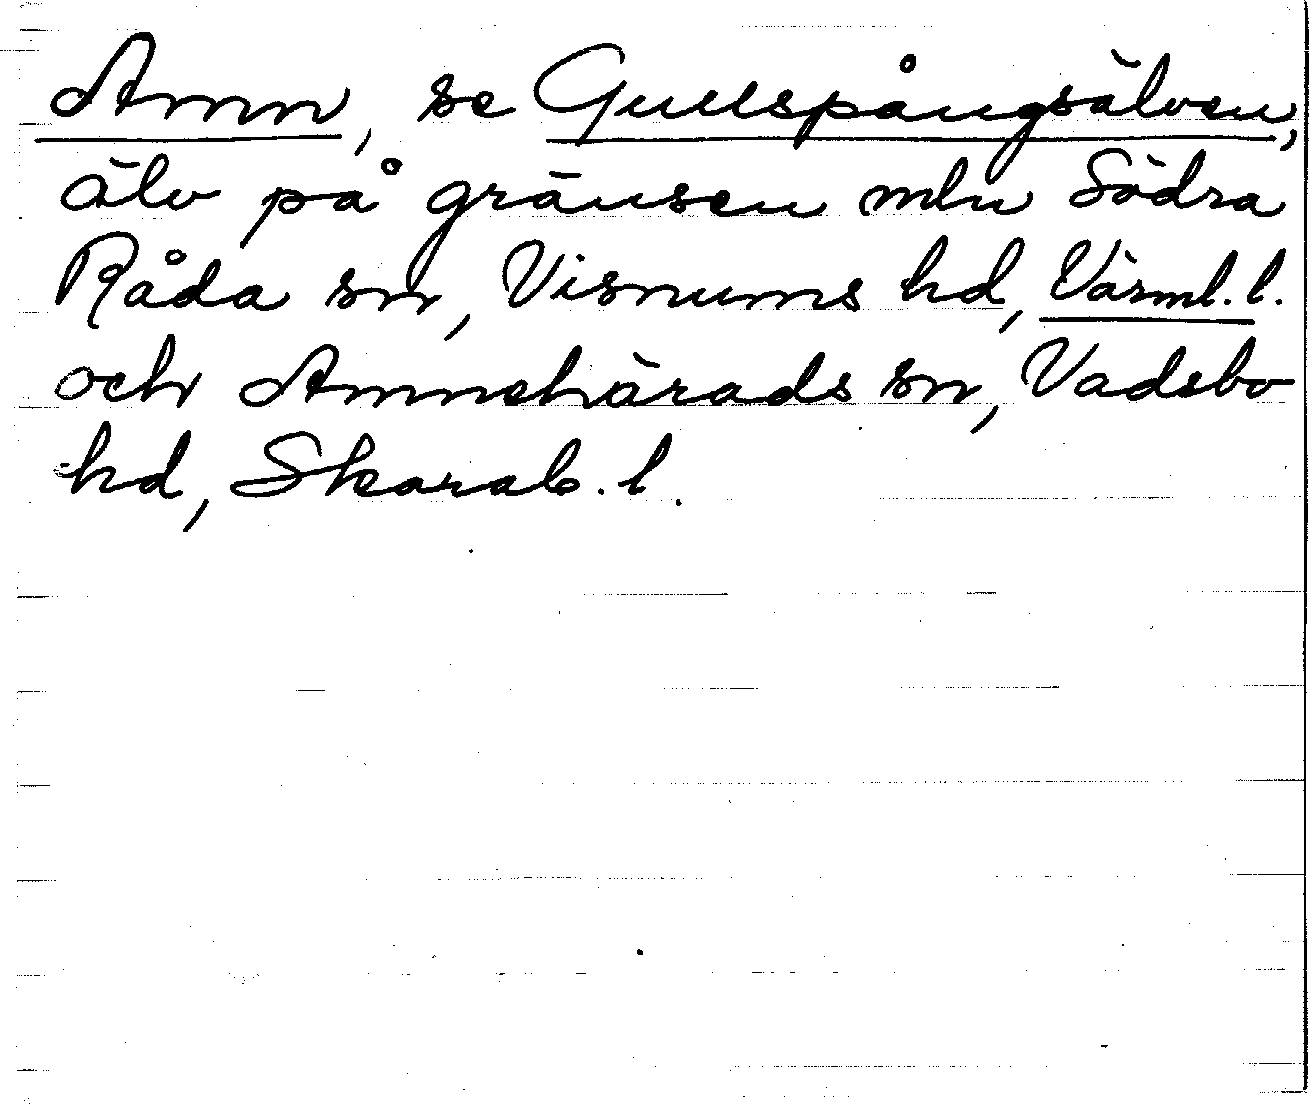 Amn, se Gullspångsälven,
älv på gränsen mln Södra
Råda sn, Visnums hd, Värml. l.
och Amnehärads sn, Vadsbo
hd, Skarab. l.